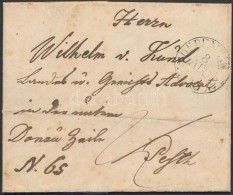 Herrn
Wilhelm v. Kund
Landes u. Gerichts Advocat
in der untern
Donau Zeile
N. 65
Pesth